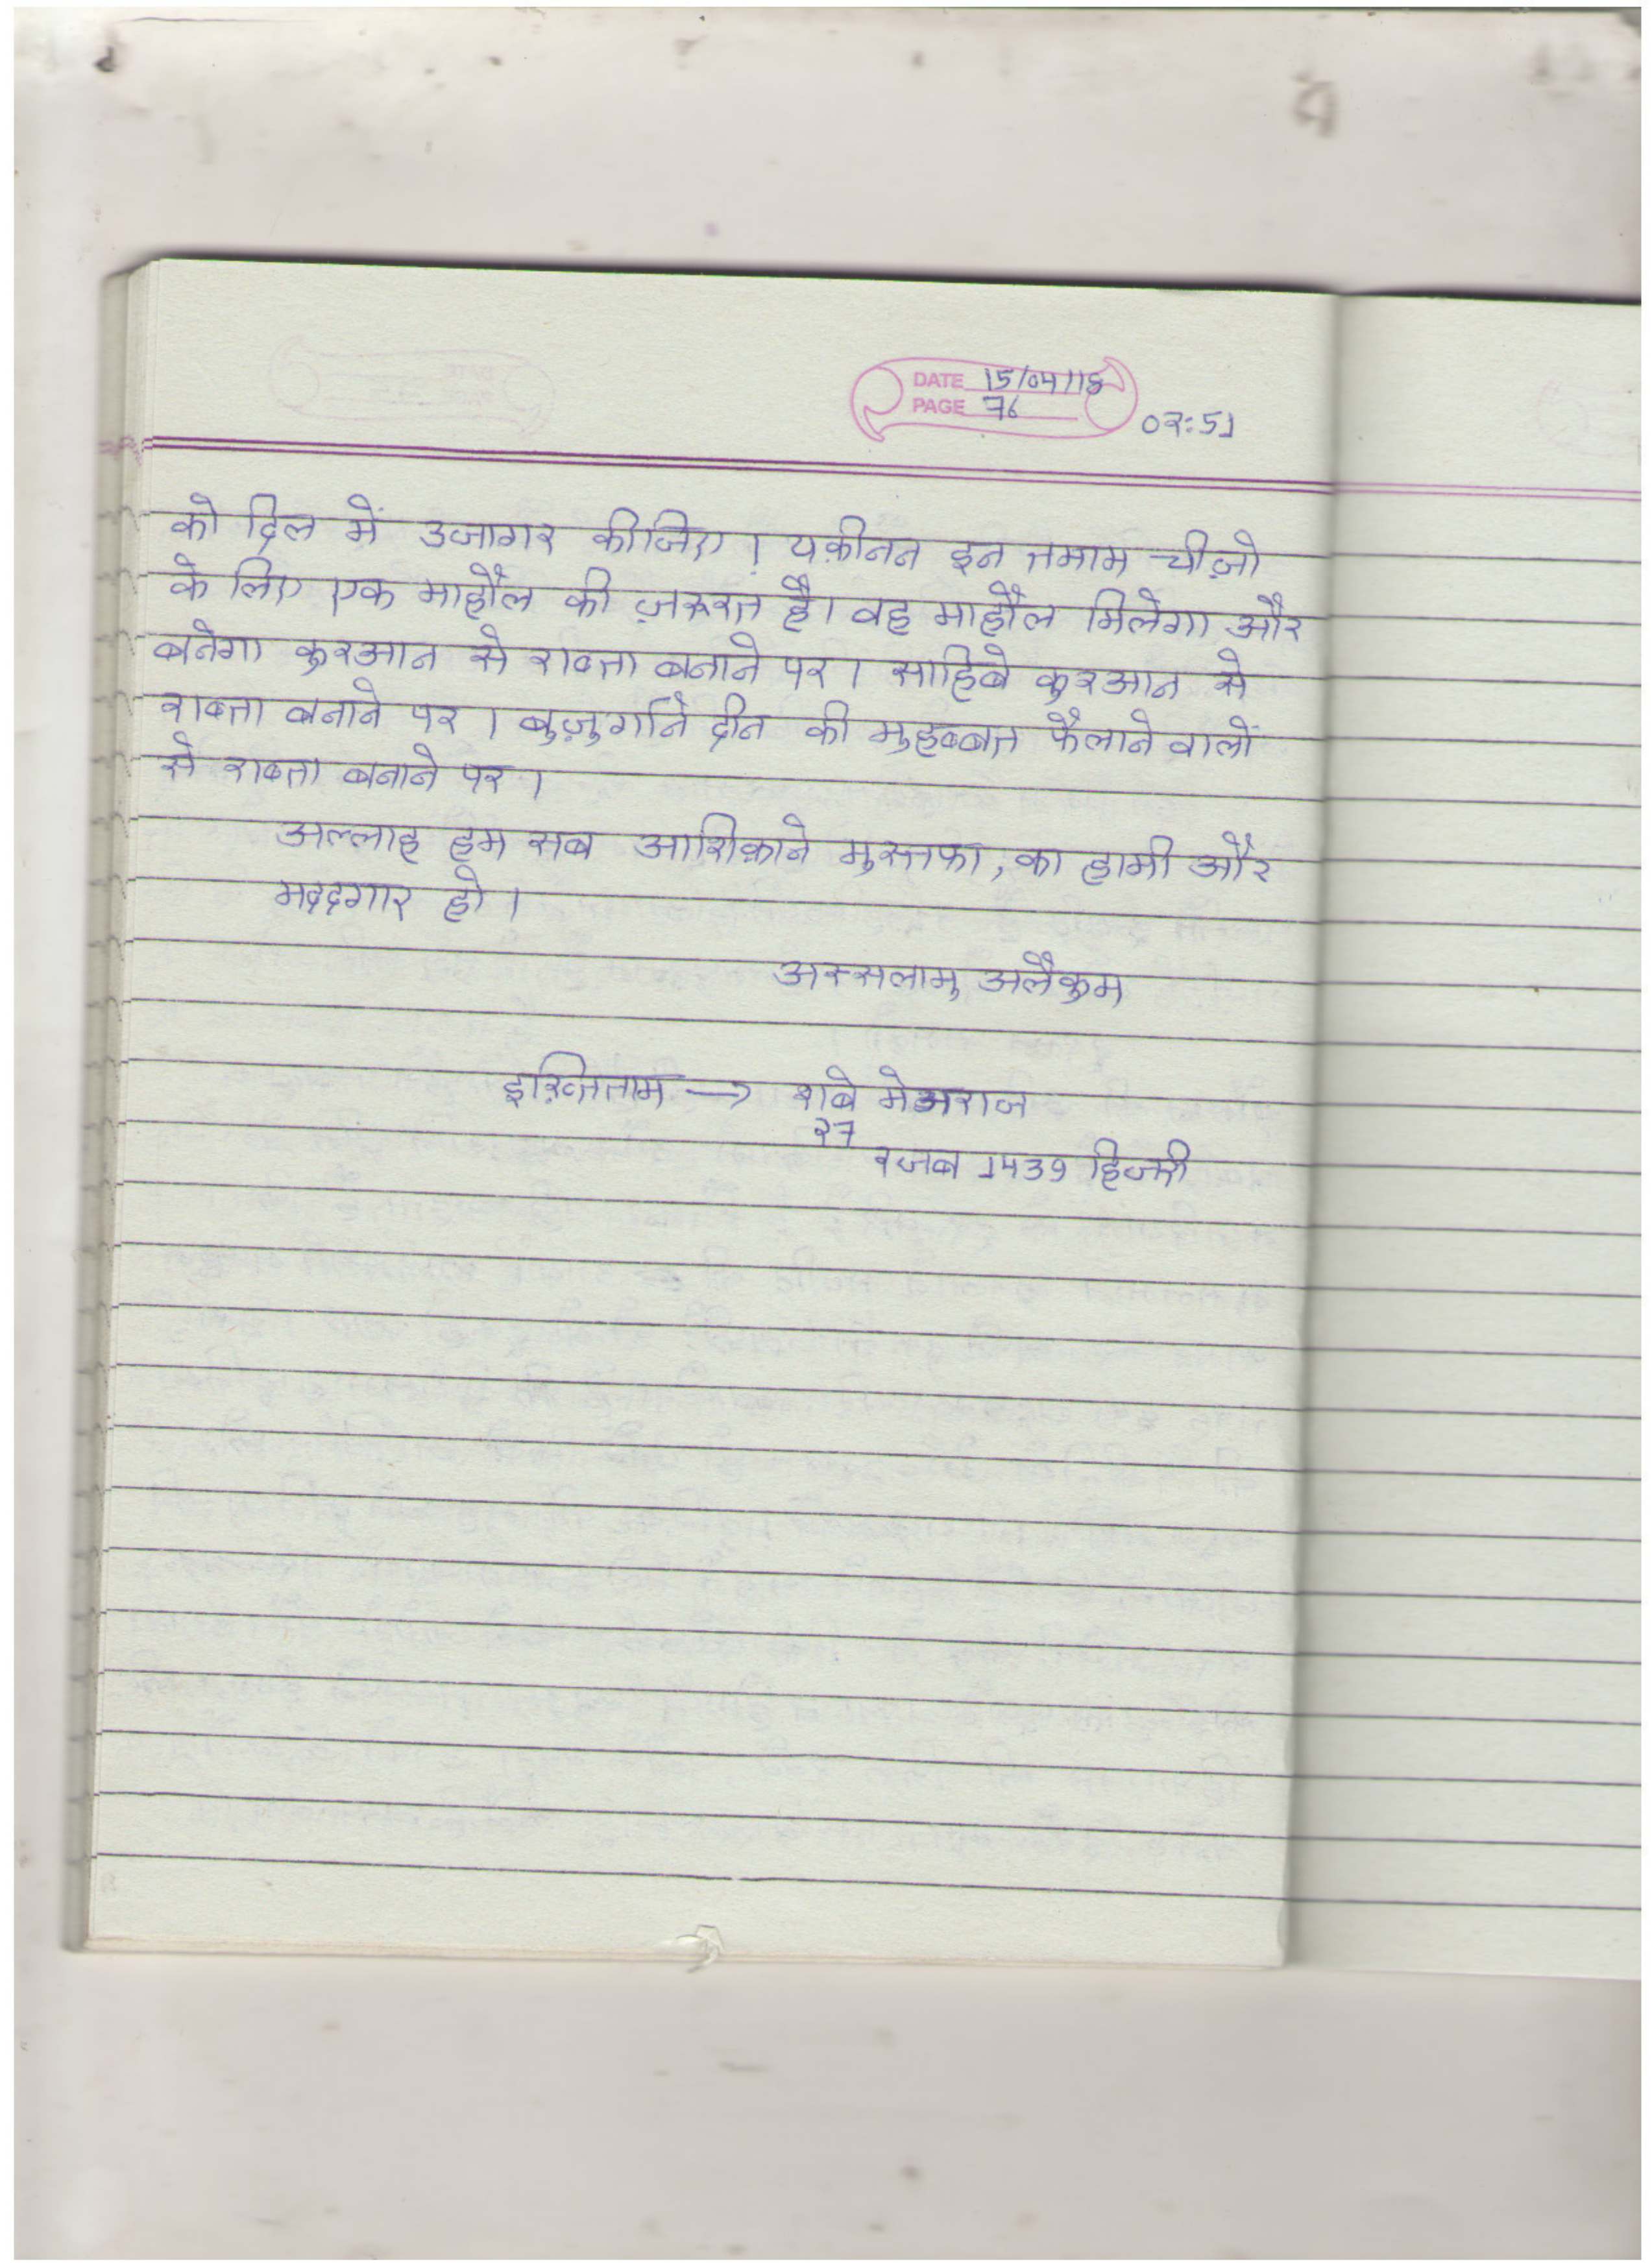 DATE 15/04/18
PAGE 76
02:51
को दिल में उजागर कीजिए। यक़ीनन इन तमाम चीज़ो
के लिए एक माहौल की ज़रूरत है। वह माहौल मिलेगा और
बनेगा कुरआन से राब्ता बनाने पर। साहिबे कुरआन से
राब्ता बनाने पर। बुज़ुर्गाने दीन की मुहब्बत फैलाने वालों
से राब्ता बनाने पर।
अल्लाह हम सब आशिक़ाने मुस्तफा, का हामी और
मददगार हो।
अस्सलामु अलैकुम
इख़्तिताम → शबे मेअराज
27
रजब 1439 हिजरी